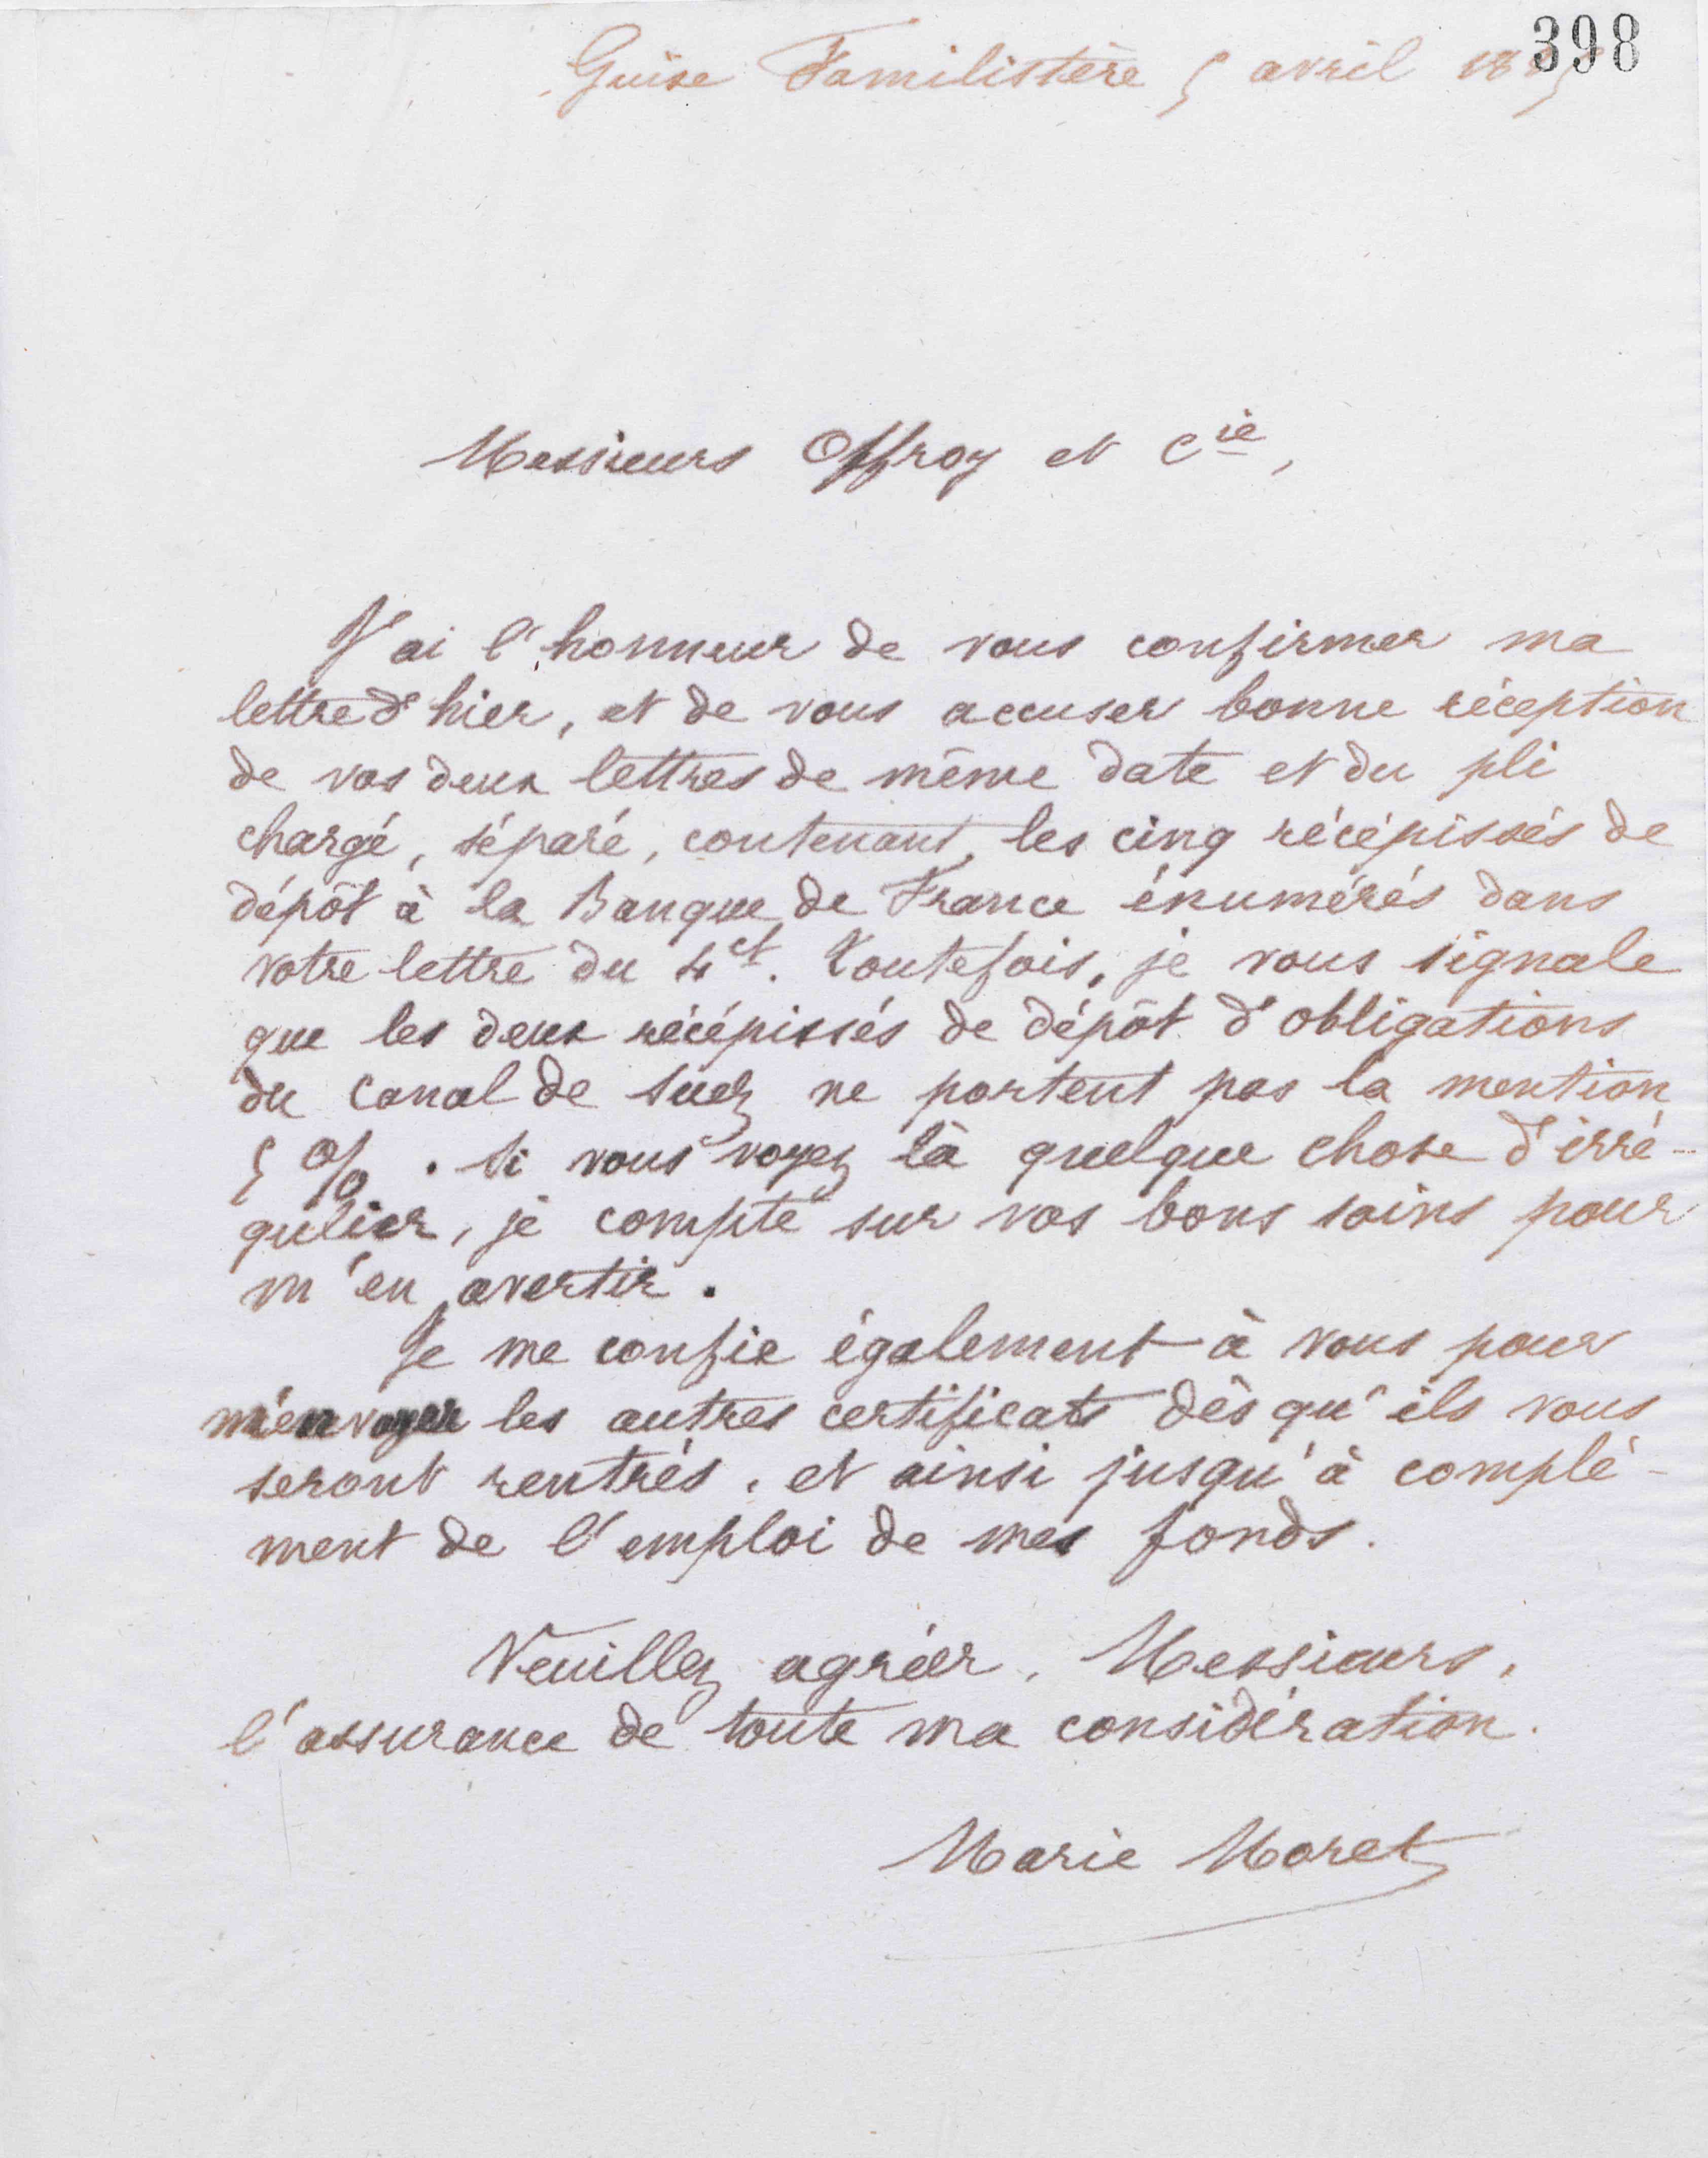 398
Guise Familistère 5 avril
Messieurs Offroy et Cie,
J'ai l'honneur de vous confirmer ma
lettre d'hier, et de vous accuser bonne réception
de vos deux lettres de même date et du pli
chargé, séparé, contenant les cinq récépissés de
dépôt à la Banque de France énumérés dans
votre lettre du 4 ct. Toutefois, je vous signale
que les deux récépissés de dépôt d'obligations
du Canal de Suez ne portent pas la mention
5 %. Si vous voyez là quelque chose d'irré-
gulier, je compte sur vos bons soins pour
m'en avertir.
Je me confie également à vous pour
m'envoyer les autres certificats dès qu'ils vous
seront rentrés, et ainsi jusqu'à complé-
ment de l'emploi de mes fonds.
Veuillez agréer, Messieurs,
l'assurance de toute ma considération.
Marie Moret